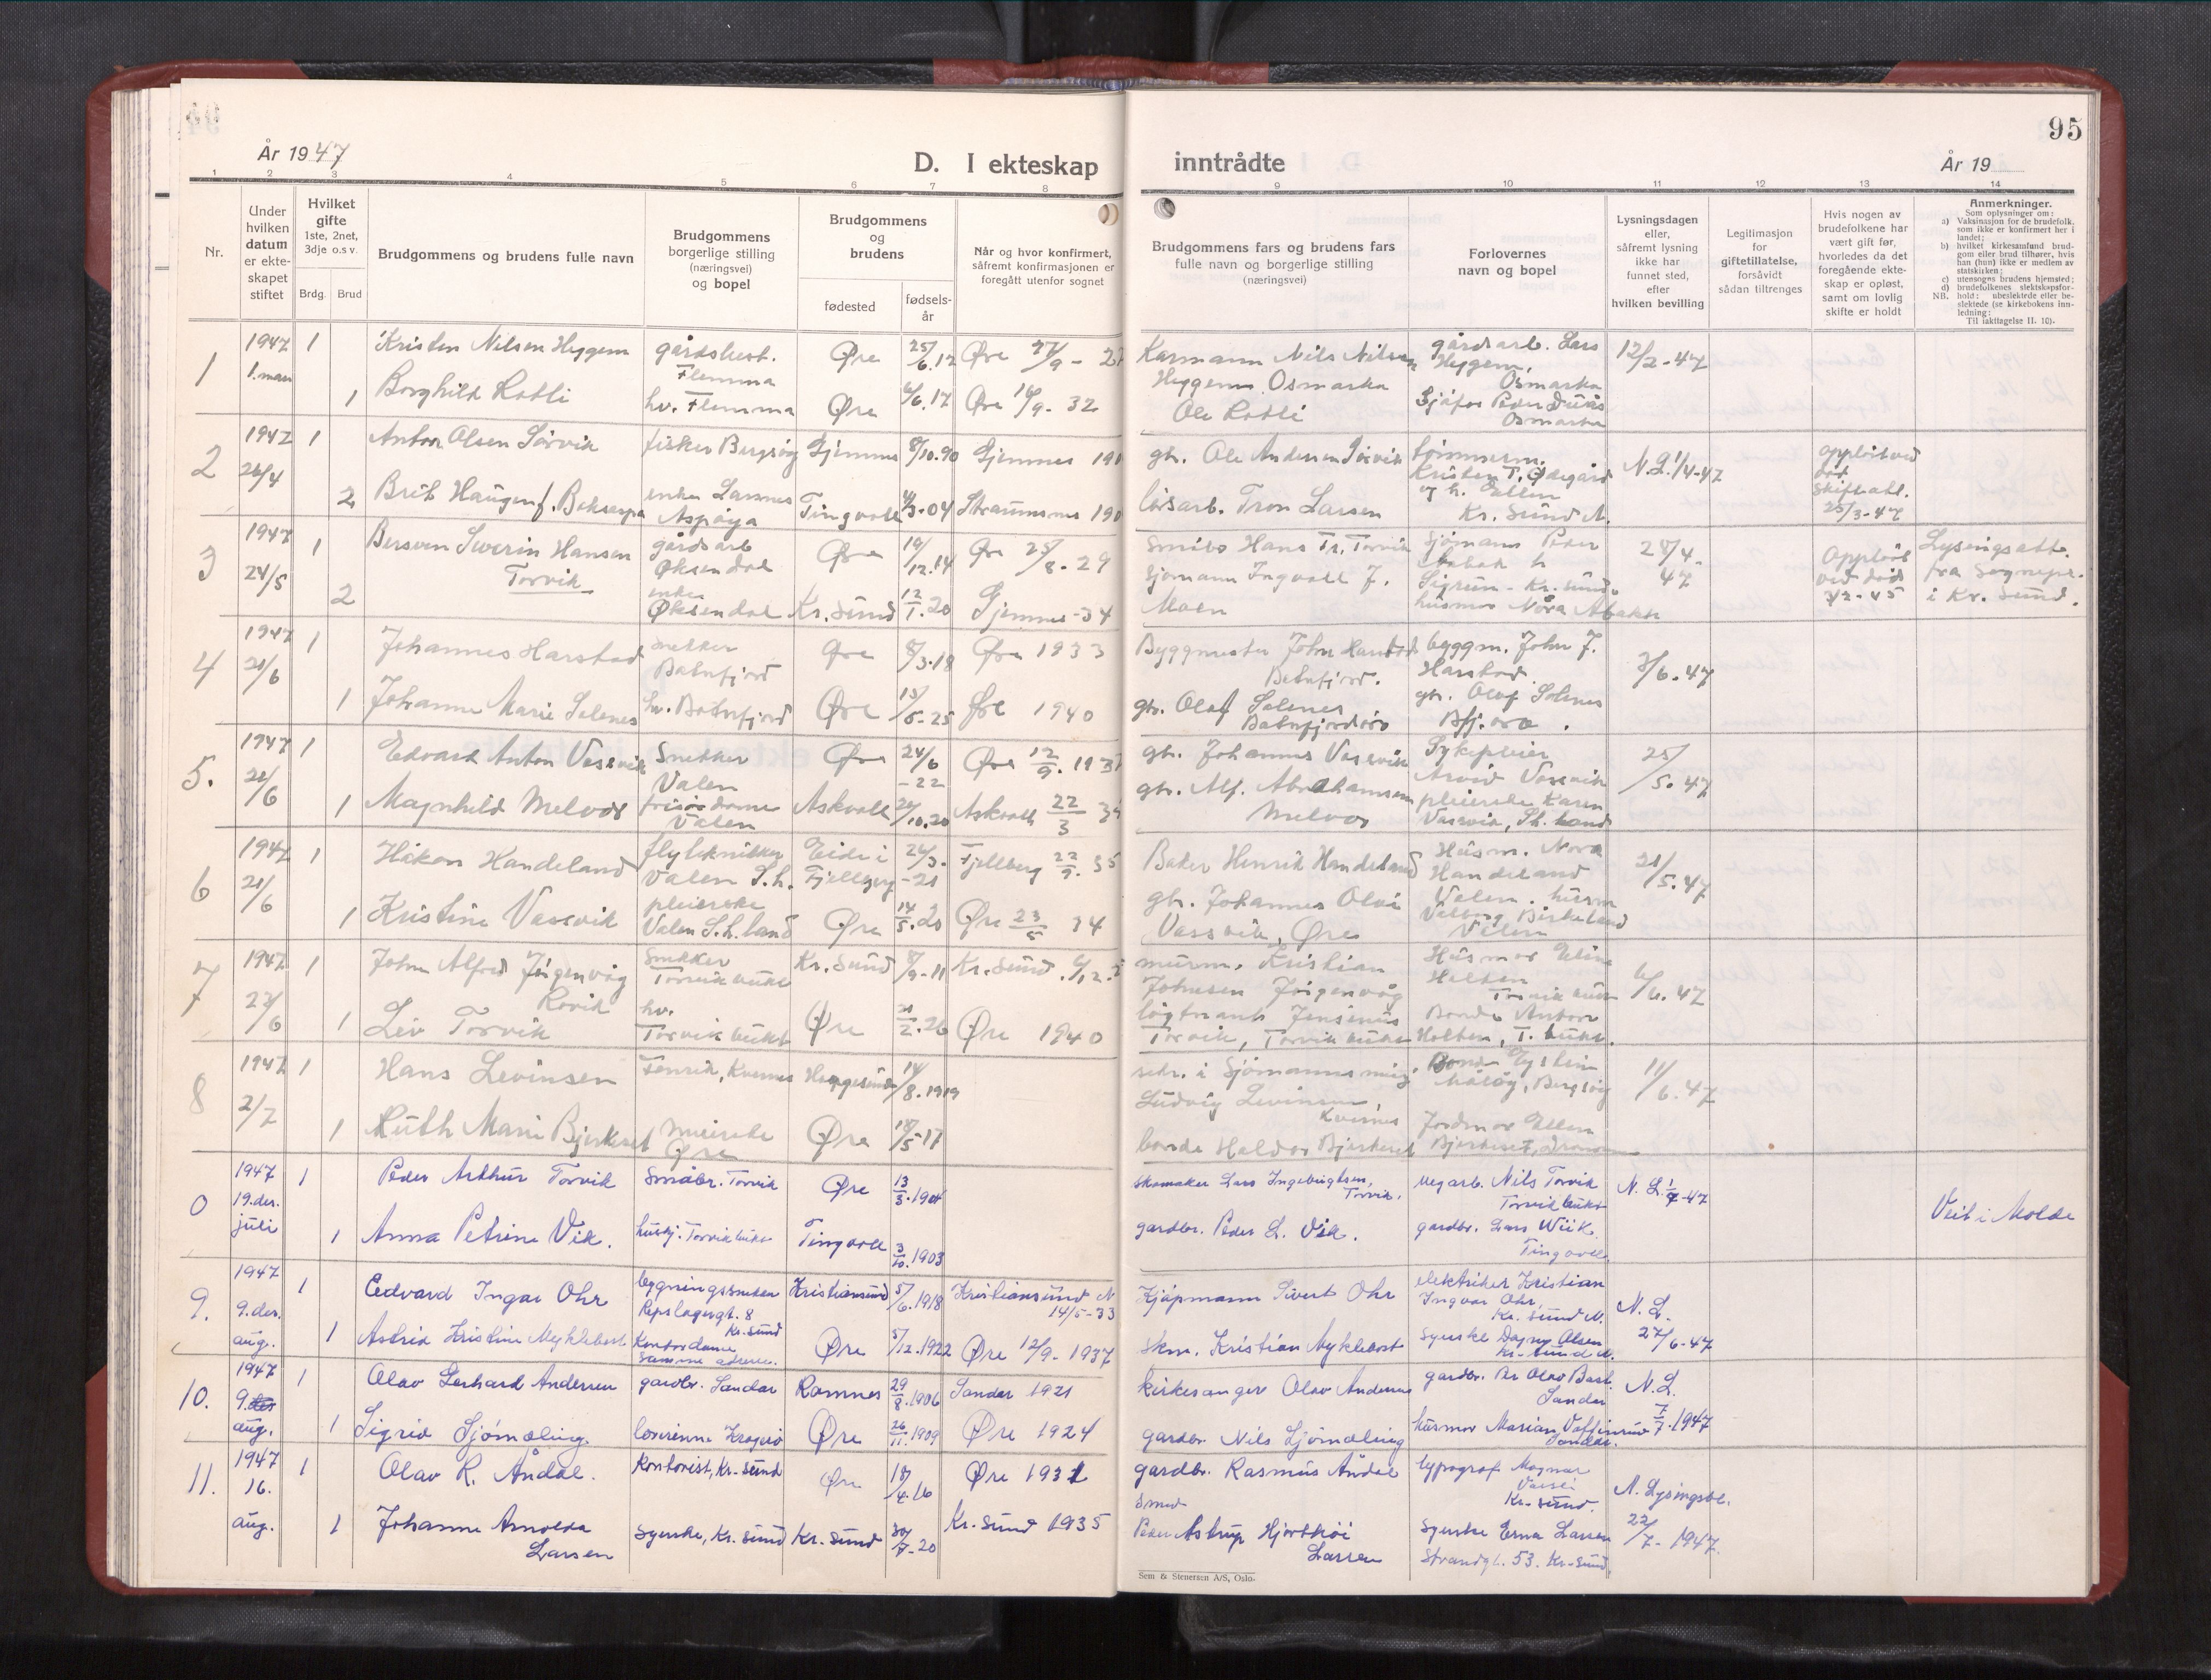 95
År 1947
D. I ekteskap
inntrådte
År 19
1 2 3 4 5 6 7 8 9 10 11 12 13 14
Nr.
Under
hvilken
datum
er ekte-
skapet
stiftet
Hvilket
gifte
1ste, 2net,
3dje o.s v.
Brdg.
Brud
Brudgommens og brudens fulle navn
Brudgommens
borgerlige stilling
(næringsvei)
og bopel
Brudgommens
og
brudens
fødested
fødsels-
år
Når og hvor konfirmert,
såfremt konfirmasjonen er
foregått utenfor sognet
Brudgommens fars og brudens fars
fulle navn og borgerlige stilling
(næringsvei)
Forlovernes
navn og bopel
Lysningsdagen
eller,
såfremt lysning
ikke har
funnet sted,
efter
hvilken bevilling
Legitimasjon
for
giftetillatelse,
forsåvidt
sådan tiltrenges
Hvis nogen av
brudefolkene har
vært gift før,
hvorledes da det
foregående ekte-
skap er opløst,
samt om lovlig
skifte er holdt
Anmerkninger.
Som oplysninger om:
a) Vaksinasjon for de brudefolk,
som ikke er konfirmert her i
landet;
b) hvilket kirkesamfund brud-
gom eller brud tilhører, hvis
han (hun) ikke er medlem av
statskirken;
c) utensogns brudens hjemsted;
d) brudefolkenes slektskapsfor-
NB. hold: ubeslektede eller be-
slektede (se kirkebokens inn-
ledning:
Til iakttagelse II. 10).
1 1947 1 Kristen Nilsen Heggem gårdsbest. Øre 25/6.12 Øre 27/9 - 27 Karmann Nils Nilsen gårdsarb. Lars 12/2-47
Flemma Heggem Osmarka Heggem, Osmarka
1 Borghild Rotli hv. Flemma Øre 6/6.17 Øre 18/9-32 Ole Rotli Osmarka
2 1947 1 Anton Olsen Sørvik fisker Bergsøy Gjemnes 8/10.90 Gjemnes gbr. Ole Andersen Sørvik tømmerm. N.L. 1/4-47 oppløst ved
26/4 Kristen T. Ødegård død
2 Brit Haugen f. enke Tingvoll 4/3-04 løsarb. Tron Larsen og h. Ellen skifteatt.
Aspøya Kr. Sund N. 25/3-47
3 1947 1 Bersven Severin Hansen gårdsarb Øre 19/12.14 Øre 25/8-29 Småbr Hans Tr. Torvik Sjømann Peder 28/4- Oppløst Lysingsatt.
24/5 Torvik Øksendal 47 ved død fra Sognepr.
2 enke Sjømann Ingvald J. Sigrun - Kr. sund. i Kr. Sund.
Øksendal Kr. Sund 12/1.20 Gjemnes -34 Moen husmor Nora
4 1947 1 Johannes Harstad Snekker Øre 8/3.18 Øre 1933 Byggmester John Harstad byggm. John J. 3/6.47
21/6 Batnfjord Batnfjord. Harstad.
1 Johanne Marie Solenes hv. Batnfjord Øre 13/5-25 Øre 1940 gbr. Olaf Solenes gbr. Olaf Solenes
Batnfjordsøra Bfj.øra.
5. 1947 1 Edvard Anton Vassvik Snekker Øre 24/6 -22 Øre 12/9. gbr. Johannes Vassvik Sykepleier 25/5.47
21/6 Valen Arvid Vassvik
1 Magnhild Melvær frisørdame Askvoll 24/10.20 Askvoll 22/3 gbr. Alf. Abrahamsen pleierske Karen
Valen Vassvik, Sh. land
6 1947 1 Håkon Handeland flytekniker Eide i 24/3. -21 Fjelberg 22/9. 35 Baker Henrik Handeland Husm. Nora 21/5.47
21/6 Valen S.h. Fjellberg Handeland
1 Kristine Vassvik pleierske Øre 14/5.20 Øre 23/5 34 gbr. Johannes Olai Valen. husm
Valen S.h. land Vassvik, Øre Valborg Birkeland
Valen
7 1947 1 John Alfred Jørgenvåg Snekker Kr. Sund 8/9-11 Kr. Sund. murm. Kristian Husmor Eline 6/6.47
Torvikbukt Johnsen Jørgenvåg Holten
27/6 Torvikbukt
1 Liv Torvik hv. Øre 21/2.26 Øre 1940 løgtmank Jensenius Bonde Anton
Torvikbukt Torvik, Torvikbukt Holten, T. bukt.
8 1947 1 Hans Levinsen Fenrik, Kvernes 14/8.1919 sekr. i Sjømannsmisj. Bonde Eystein 11/6.47
2/7 Ludvig Levinsen, Kvernes Måløy, Bergsøy
1 Ruth Marie Bjerkeset meierske Øre 18/5-17 bonde Haldor Bjerkeset Jordmor Ellen
Øre Bjerkeset
0 1947 1 Peder Arthur Torvik Småbr. Torvik Øre 13/3.1904 Skomaker Lars Ingebrigtsen, Torvik. vegarb. Nils Torvik N. L. -47
19.des. Torvikbukt
juli 1 Anna Petrine Vik. hushj. Torvikbukt Tingvoll 3/10.1903 gardbr. Peder L. Vik. gardbr. Lars Wiik. Viet i Molde
Tingvoll.
9. 1947 1 Edvard Ingar Ohr bygningssnekker Kristiansund 5/6.1918 Kristiansund N Kjøpmann Sivert Ohr elektriker Kristian N. L.
9.des. Repslagergt. 8 14/5-33 Ingvar Ohr,
Kr. Sund Kr. Sund N.
aug. 1 Astrid Kristine Myklebost Kontordame Øre 5/12.1922 Øre 12/9-1937 Skm. Kristian Myklebost Syerske Dagny Olsen 27/6-47
samme adresse. Kr. Sund N.
10. 1947 1 Olav Gerhard Andersen gardbr. Sandar Ramnes 29/8.1906 Sandar 1921 Kirkesanger Olav Andersen gardbr. N.L.
9. Sandar
aug. 1 Sigrid Sjømæling. lærerinne Kragerø Øre 26/11.1909 Øre 1924 gardbr. Nils Sjømæling husmor Marian 7/7.1947
Sandar.
11. 1947 1 Olav R. Åndal. Kontorist, Kr-Sund Øre 18/4.16 Øre 1931 gardbr. Rasmus Åndal typograf Magnar N. Lysingsbl.
16. Kr-Sund. 22/7-1947.
aug. 1 Johanne Arnolda Syerske, Kr. Sund Kr. Sund 30/7-20 Kr. Sund 1935 Smed Syerske Erna Larsen
Larsen Peder Astrup Hjorthøi Larsen Strandgt. 53. Kr-Sund.
Sem & Stenersen A/S, Oslo.